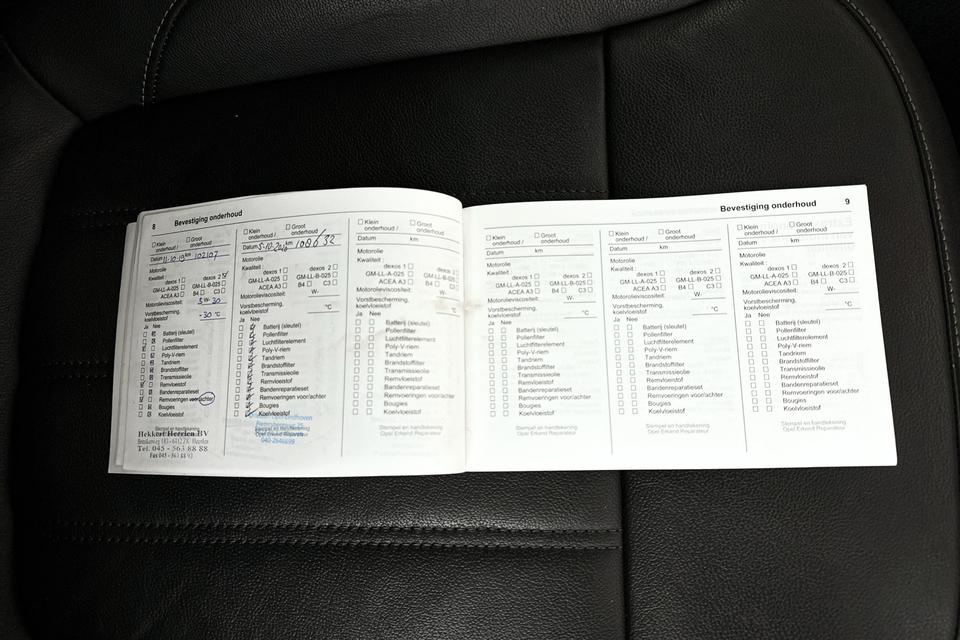 8 Bevestiging onderhoud
Klein onderhoud / Groot onderhoud
Datum 11-10-19 km 102107
Motorolie
Kwaliteit :
dexos 1 dexos 2
GM-LL-A-025 GM-LL-B-025
ACEA A3 B4 C3
Motorolieviscositeit: 5 W- 30
Vorstbescherming,
koelvloeistof -30 °C
Ja Nee
Batterij (sleutel)
Pollenfilter
Luchtfilterelement
Poly-V-riem
Tandriem
Brandstoffilter
Transmissieolie
Remvloeistof
Bandenreparatieset
Remvoeringen voor/achter
Bougies
Koelvloeistof
Hekkert Heerlen BV
Tel. 045 - 563 88 88
Fax 045 - 563 88 93
Klein onderhoud / Groot onderhoud
Datum km
Motorolie
Kwaliteit :
dexos 1 dexos 2
GM-LL-A-025 GM-LL-B-025
ACEA A3 B4 C3
Motorolieviscositeit: W-
Vorstbescherming,
koelvloeistof °C
Ja Nee
Batterij (sleutel)
Pollenfilter
Luchtfilterelement
Poly-V-riem
Tandriem
Brandstoffilter
Transmissieolie
Remvloeistof
Bandenreparatieset
Remvoeringen voor/achter
Bougies
Koelvloeistof
Stempel en handtekening
Opel Erkend Reparateur
Klein onderhoud / Groot onderhoud
Datum km
Motorolie
Kwaliteit :
dexos 1 dexos 2
GM-LL-A-025 GM-LL-B-025
ACEA A3 B4 C3
Motorolieviscositeit: W-
Vorstbescherming,
koelvloeistof °C
Ja Nee
Batterij (sleutel)
Pollenfilter
Luchtfilterelement
Poly-V-riem
Tandriem
Brandstoffilter
Transmissieolie
Remvloeistof
Bandenreparatieset
Remvoeringen voor/achter
Bougies
Koelvloeistof
Stempel en handtekening
Opel Erkend Reparateur
Bevestiging onderhoud 9
Klein onderhoud / Groot onderhoud
Datum km
Motorolie
Kwaliteit :
dexos 1 dexos 2
GM-LL-A-025 GM-LL-B-025
ACEA A3 B4 C3
Motorolieviscositeit: W-
Vorstbescherming,
koelvloeistof °C
Ja Nee
Batterij (sleutel)
Pollenfilter
Luchtfilterelement
Poly-V-riem
Tandriem
Brandstoffilter
Transmissieolie
Remvloeistof
Bandenreparatieset
Remvoeringen voor/achter
Bougies
Koelvloeistof
Stempel en handtekening
Opel Erkend Reparateur
Klein onderhoud / Groot onderhoud
Datum km
Motorolie
Kwaliteit :
dexos 1 dexos 2
GM-LL-A-025 GM-LL-B-025
ACEA A3 B4 C3
Motorolieviscositeit: W-
Vorstbescherming,
koelvloeistof °C
Ja Nee
Batterij (sleutel)
Pollenfilter
Luchtfilterelement
Poly-V-riem
Tandriem
Brandstoffilter
Transmissieolie
Remvloeistof
Bandenreparatieset
Remvoeringen voor/achter
Bougies
Koelvloeistof
Stempel en handtekening
Opel Erkend Reparateur
Klein onderhoud / Groot onderhoud
Datum km
Motorolie
Kwaliteit :
dexos 1 dexos 2
GM-LL-A-025 GM-LL-B-025
ACEA A3 B4 C3
Motorolieviscositeit: W-
Vorstbescherming,
koelvloeistof °C
Ja Nee
Batterij (sleutel)
Pollenfilter
Luchtfilterelement
Poly-V-riem
Tandriem
Brandstoffilter
Transmissieolie
Remvloeistof
Bandenreparatieset
Remvoeringen voor/achter
Bougies
Koelvloeistof
Stempel en handtekening
Opel Erkend Reparateur